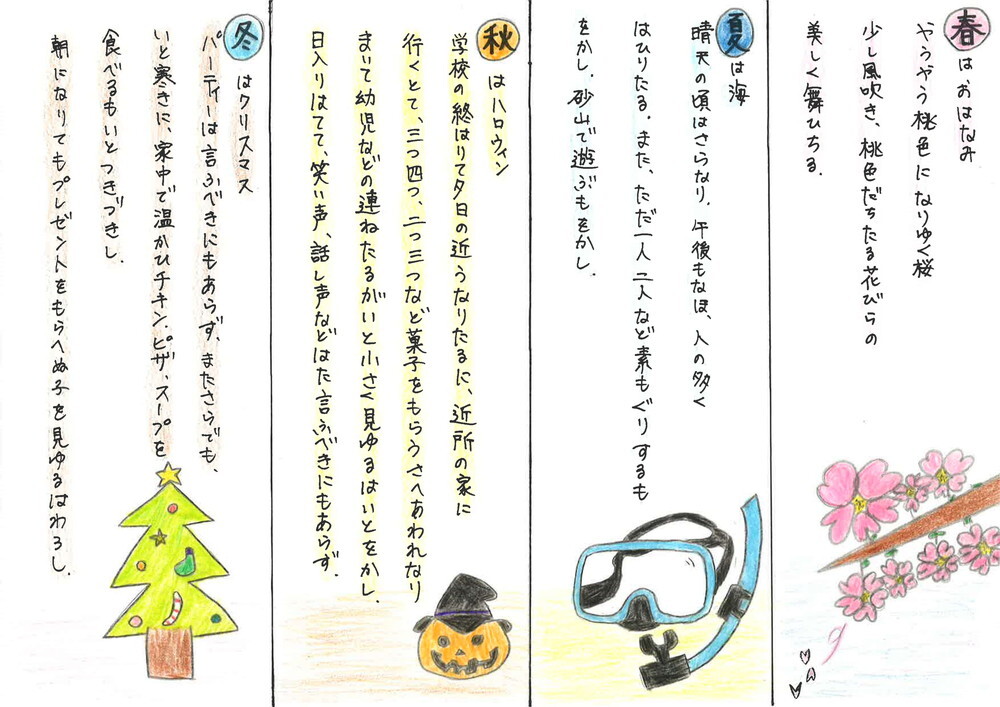 春はおはなみ
やうやう桃色になりゆく桜
少し風吹き、桃色だちたる花びらの
美しく舞ひちる.
夏は海
晴天の頃はさらなり. 午後もなほ、人の多く
はひりたる. また、ただ一人二人など素もぐりするも
をかし. 砂山で遊ぶもをかし.
秋はハロウィン
学校の終はりて夕日の近うなりたるに、近所の家に
行くとて、三つ四つ、二つ三つなど菓子をもらうさへあわれなり
まいて幼児などの連ねたるがいと小さく見ゆるはいとをかし.
日入りはてて、笑い声、話し声などはた言ふべきにもあらず.
冬はクリスマス
パーティーは言ふべきにもあらず、またさらでも、
いと寒きに、家中で温かひチキン、ピザ、スープを
食べるもいとつきづきし.
朝になりてもプレゼントをもらへぬ子を見ゆるはわろし.